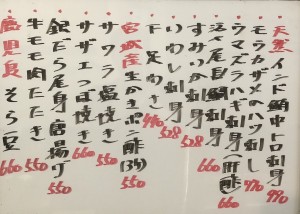 天然インド鮪中トロ刺身 990
モウカザメのハツ刺し 770
ウマズラハギ刺身(肝酢) 660
活〆尾鯛刺身 660
すみいか刺身 528
いわし刺身 528
下足わさ 440
宮城産生かきポン酢(3ケ) 550
サワラ塩焼き 550
サザエつぼ焼き 660
銀だら尾身唐揚げ 550
牛モモ肉たたき 550
鹿児島そら豆 660